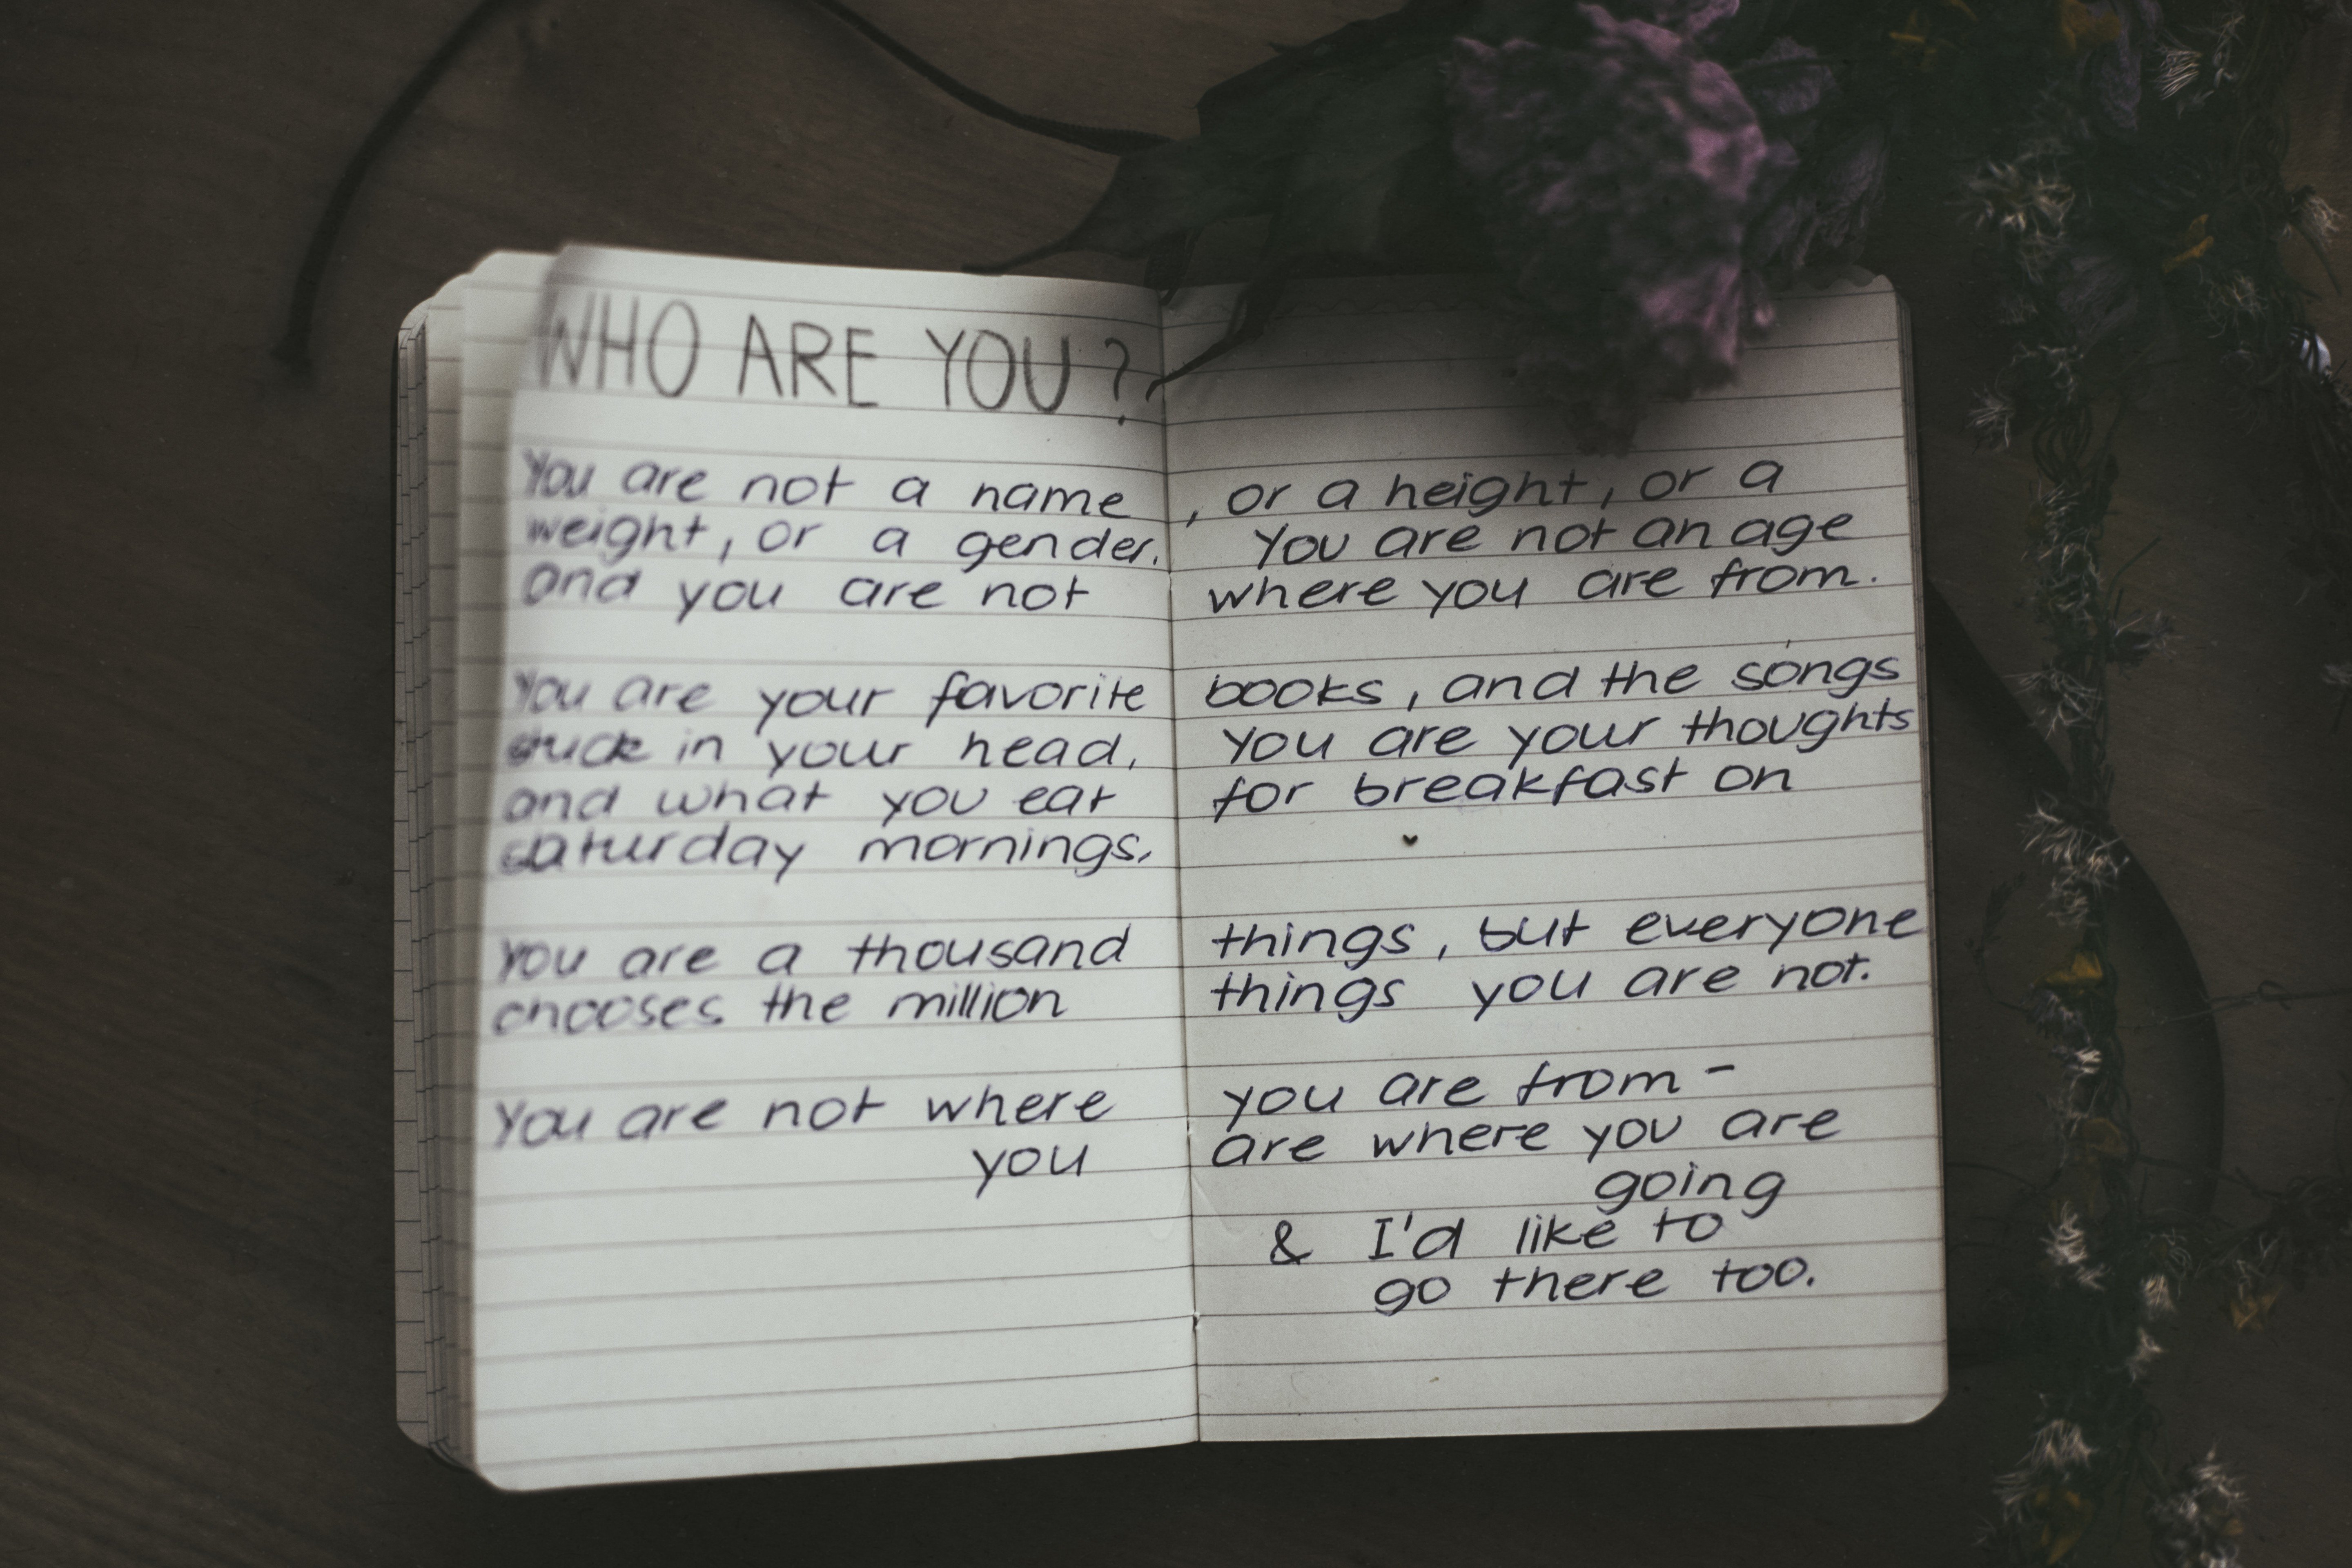 WHO ARE YOU?
You are not a name, or a height, or a
weight, or a gender. You are not an age
and you are not where you are from.
You are your favorite books, and the songs
stuck in your head, You are your thoughts
and what you eat for breakfast on
saturday mornings.
You are a thousand things, but everyone
chooses the million things you are not.
You are not where you are from -
you are where you are
going
& I'd like to
go there too.